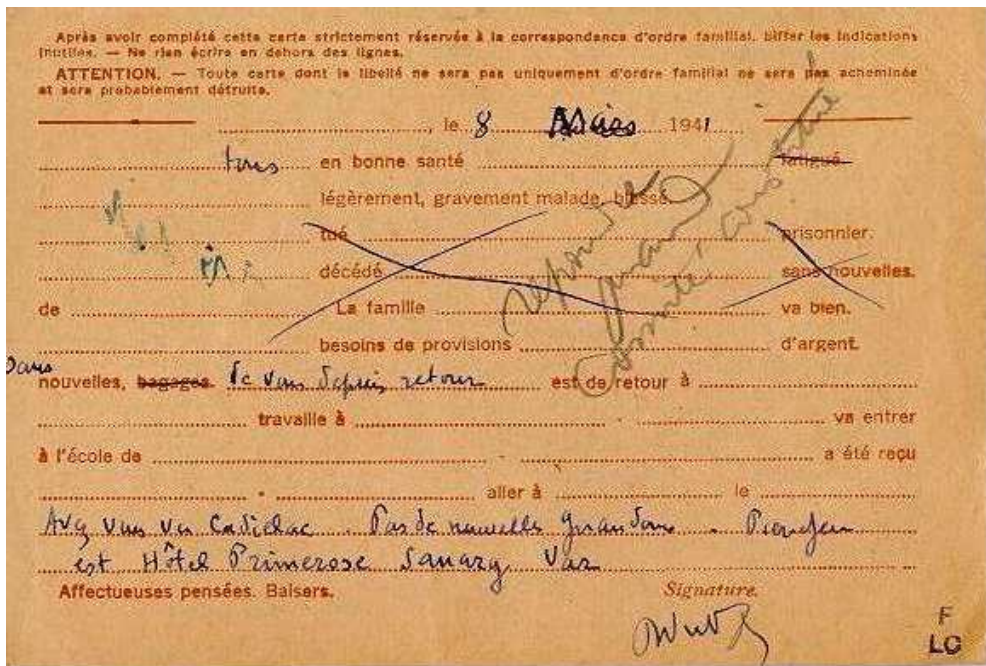 Après avoir complété cette carte strictement réservée à la correspondance d'ordre familial, biffer les indications
inutiles. — Ne rien écrire en dehors des lignes.
ATTENTION. — Toute carte dont le libellé ne sera pas uniquement d'ordre familial ne sera pas acheminée
et sera probablement détruite.
, le 8 Mars 1941
tous en bonne santé fatigué.
légèrement, gravement malade, blessé.
tué prisonnier.
décédé sans nouvelles.
de La famille va bien.
besoins de provisions d'argent.
Sans
nouvelles, bagages. de vous depuis retour est de retour à
travaille à va entrer
à l'école de a été reçu
aller à le
Avez vous vu Cadillac. Pas de nouvelle
est Hôtel Primerose Sanary Var
Affectueuses pensées. Baisers. Signature.
F
LC